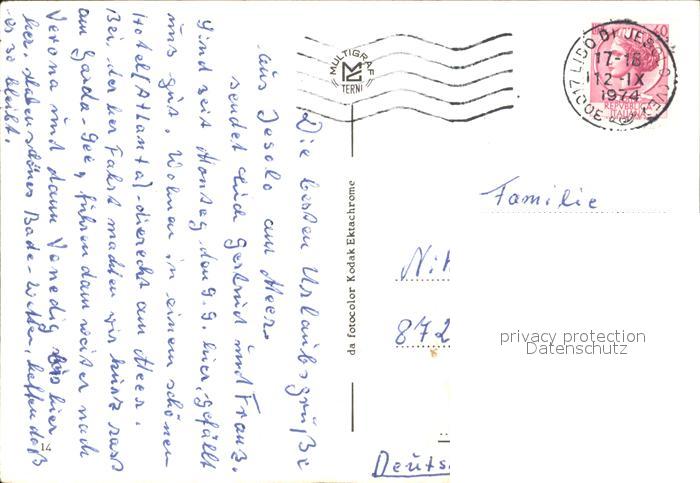 Die besten Urlaubsgrüße
aus Jesolo am Meer
sendet Euch Gertrud und Franz.
Sind seit Montag, den 9.9. hier, gefällt
uns gut. Wohnen in einem schönen
Hotel (Atlanta) - direckt am Meer.
Bei der her Fahrt machten wir kurz rast
am Garda-See, fuhren dann weiter nach
Verona und dann Venedig bis hier
her, schönes Bade-Wetter, hoffen daß
es so bleibt.
14
MULTIGRAF
TERNI
da fotocolor Kodak Ektachrome
30017 LIDO DI JESOLO (VE)
17-18
12-IX
1974
REPVBBLICA
ITALIANA
Familie
872
privacy protection
Datenschutz